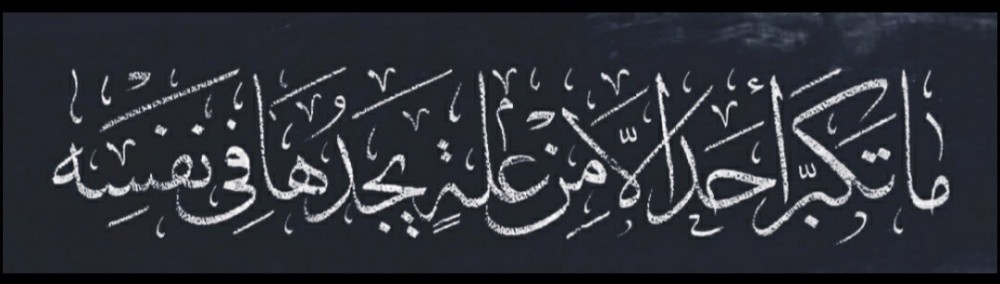 ما تكبّر أحد الّا من علةٍ يجدُها في نفسِه